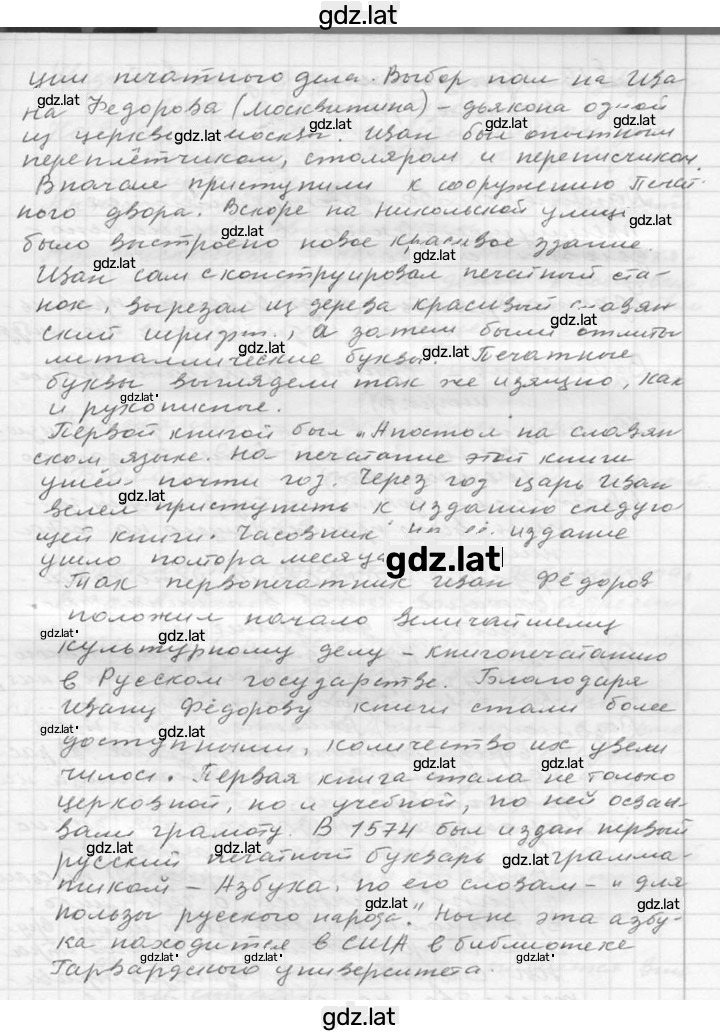 gdz.lat
ции печатного дела. Выбор пал на Ива-
на Федорова (москвитина) – дьякона одной
из церквей Москвы. Иван был опытным
переплётчиком, столяром и переписчиком.
Вначале приступили к сооружению Печат-
ного двора. Вскоре на Никольской улице
было выстроено новое красивое здание.
Иван сам сконструировал печатный ста-
нок, вырезал из дерева красивый славян
ский шрифт, а затем были отлиты
металлические буквы. Печатные
буквы выглядели так же изящно, как
и рукописные.
Первой книгой был „Апостол" на славян
ском языке. На печатание этой книги
ушёл почти год. Через год царь Иван
велел приступить к изданию следую
щей книги. Часовник издание
ушло полтора месяца
gdz.lat
Так первопечатник Иван Фёдоров
положил начало величайшему
культурному делу – книгопечатанию
в Русском государстве. Благодаря
Ивану Фёдорову книги стали более
доступными, количество их увели
чилось. Первая книга стала не только
церковной, но и учебной, по ней осваи-
вали грамоту. В 1574 был издан первый
русский печатный букварь грамма-
тикой – Азбука, по его словам – „для
пользы русского народа." Ныне эта азбу-
ка находится в США в библиотеке
Гарвардского университета.
gdz.lat